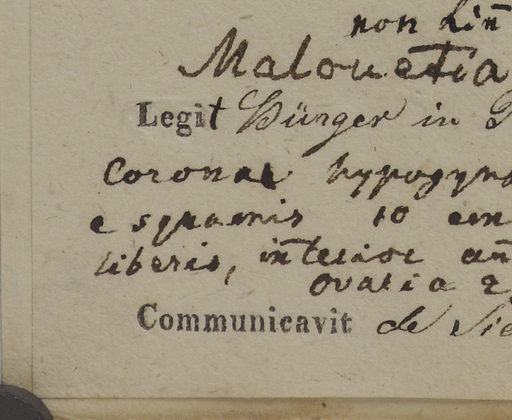 non Lin̄
Malouetia
Legit Bürger in
Corona hypogyna
e squamis 10
liberis, interior
ovaria 2
Communicavit de